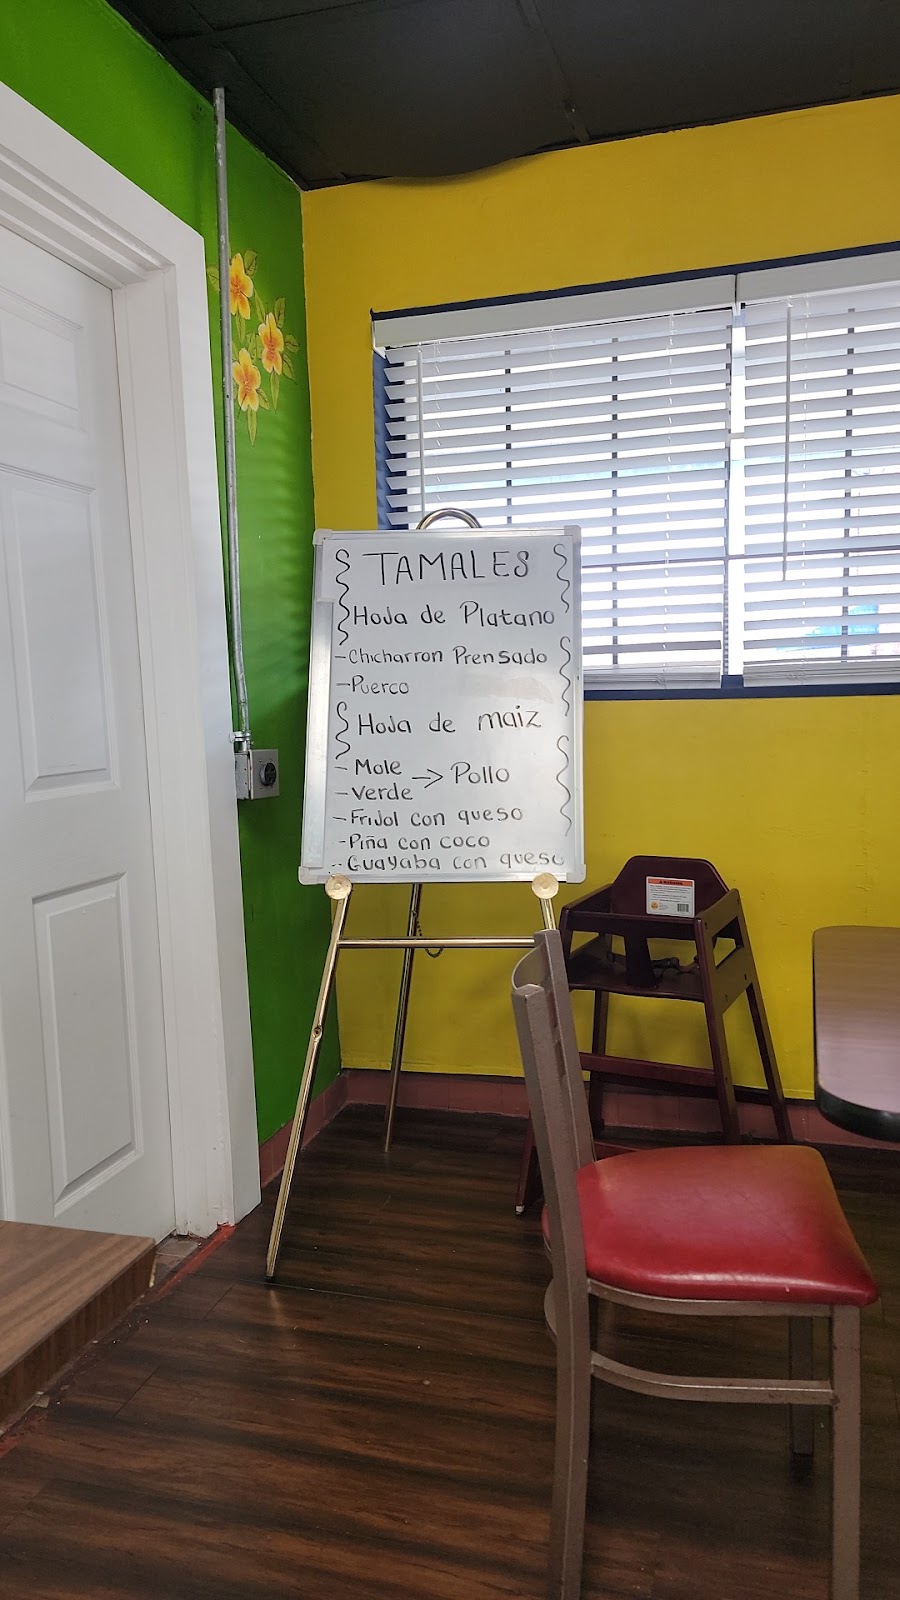 TAMALES
Hoja de Platano
-Chicharron Prensado
-Puerco
Hoja de maiz
- Mole
-Verde → Pollo
-Frijol con queso
-Piña con coco
-Guayaba con queso